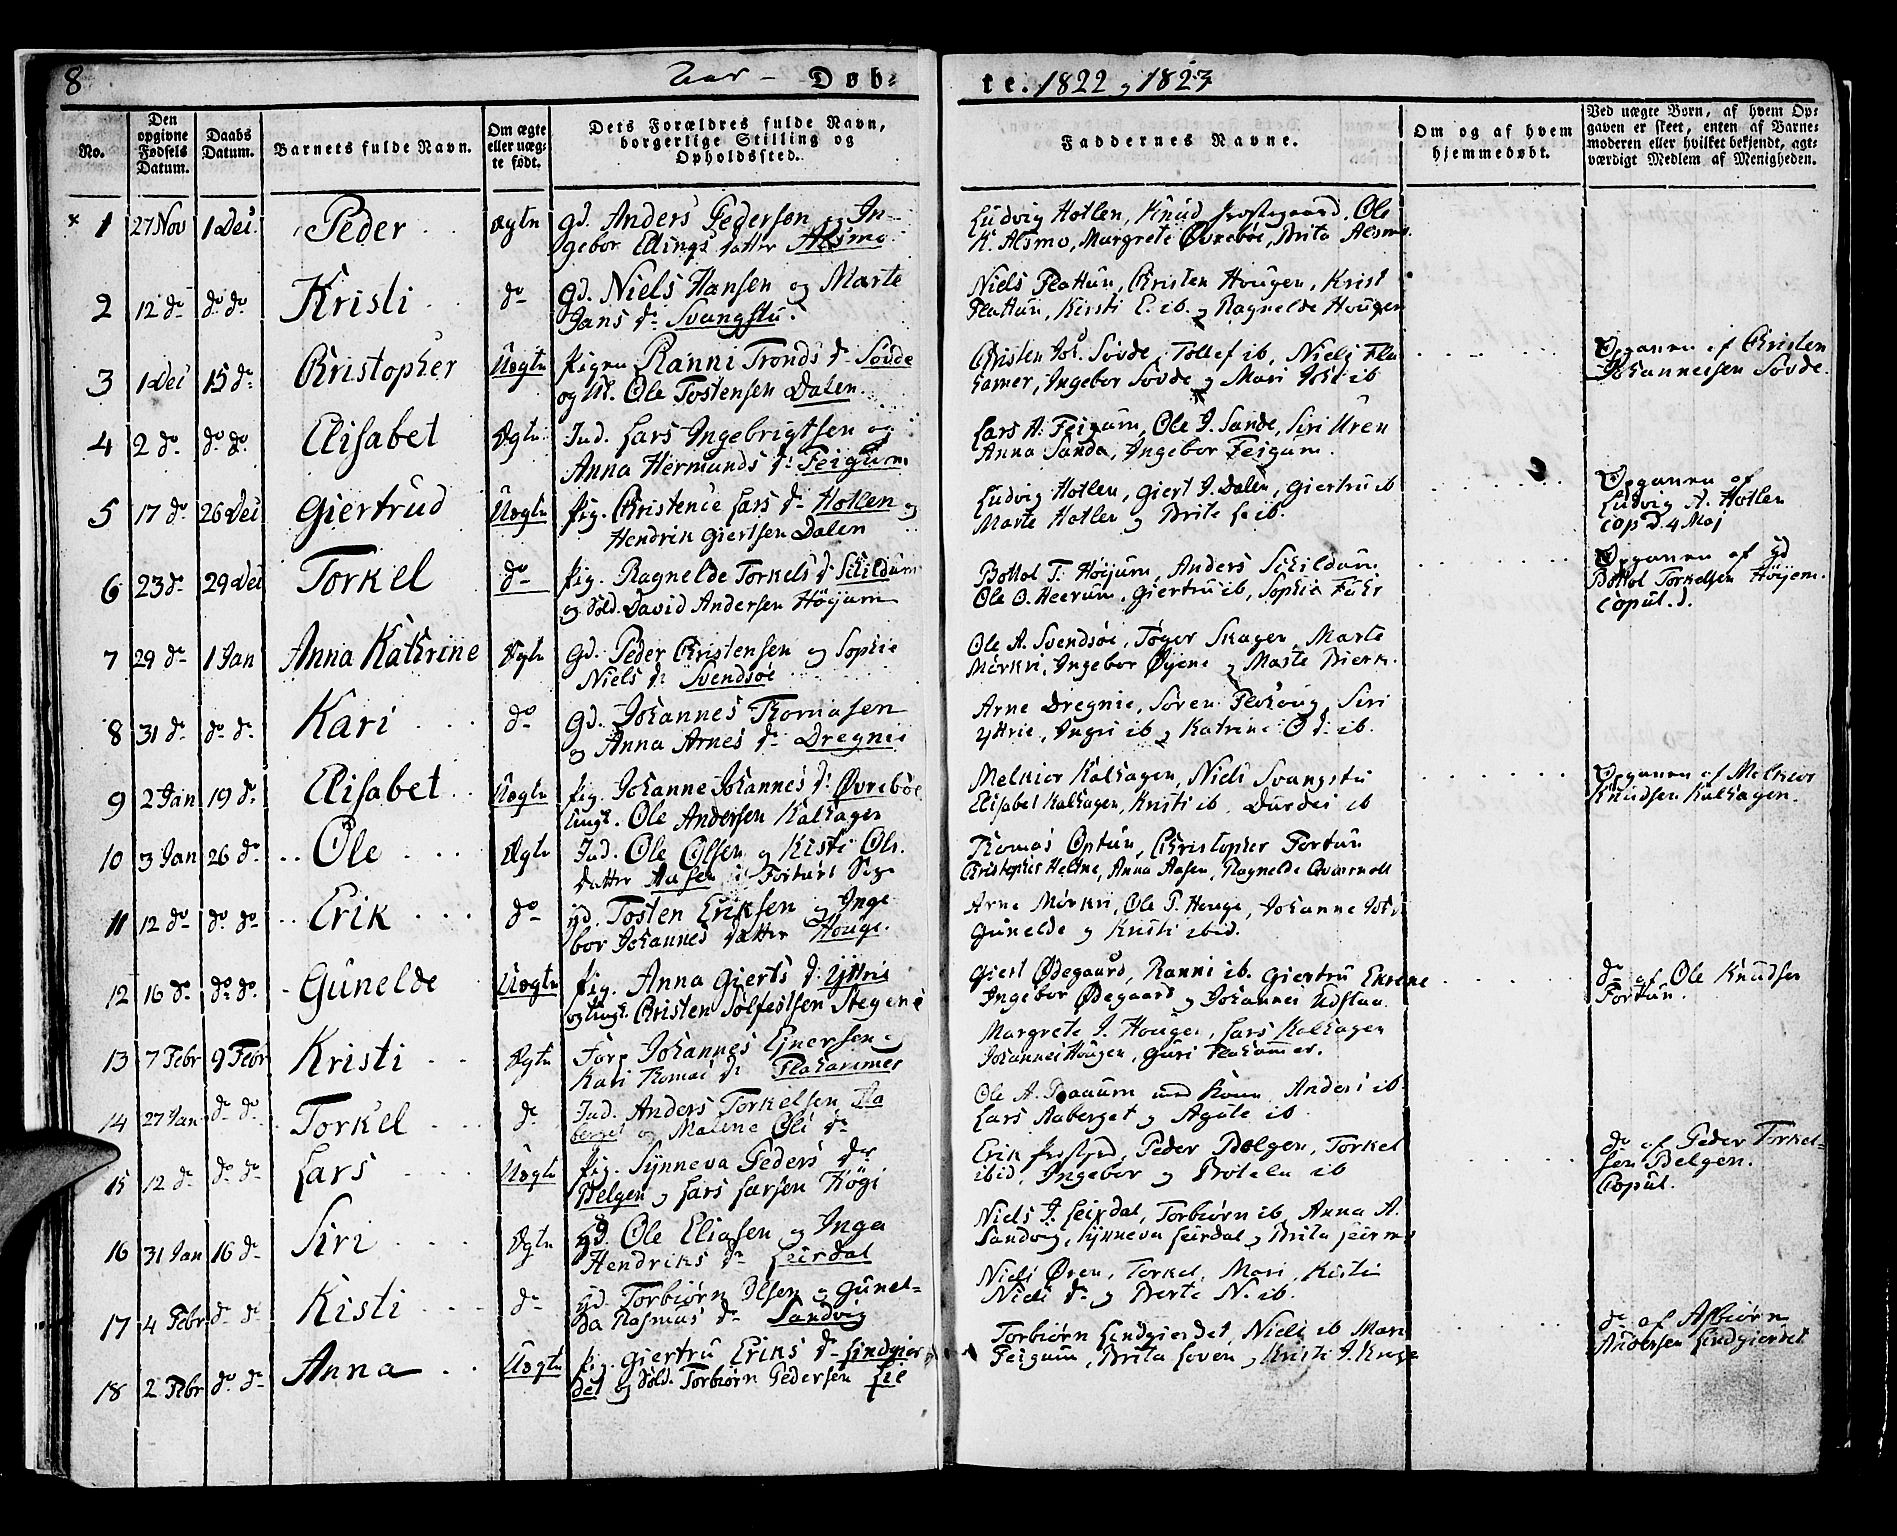 8 Aar - Døb- te. 1822 og 1823
No.
Den opgivne Fødsels Datum.
Daabs Datum.
Barnets fulde Navn.
Om ægte eller uægte født.
Dets Forældres fulde Navn, borgerlige Stilling og Opholdssted.
Faddernes Navne.
Om og af hvem hjemmedøbt.
Ved uægte Born, af hvem Opgaven er skeet, enten af Barnemoderen eller hvilket bekjendt, agtværdigt Medlem af Menigheden.
1 27 Nov 1 Dec. Peder Ægte
Gd. Anders Pedersen og In-
gebor Ellings datter Alsmo
Ludvig Hotlen, Knud, Ole
K. Alsmo, Margrete Øvrebøe, Brita Alsmo.
2 12 do do do Kristi do
Gd. Niels Hansen og Marte
Jans dr Svangstu.
Niels Flattun, Christen Hougen, Krist
Flattun, Kirsti E. ib. og Ragnelde Hougen
3 1 Dec 15 do Christopher Uægte
Pigen Ranni Tronds dr Søvde
og Ole Tostensen Dalen
Christen Joh. Søvde, Tollef ib, Niels Fla
hamer, Ingebor Søvde og Mari ib
Opgaven af Christen
Johannessen Søvde.
4 2 do do do Elisabet Ægte
Ind. Lars Ingebrigtsen og
Anna Hermunds dr Feigum
Lars H. Feigum, Ole J. Sande, Siri Uren
Anna Sande, Ingebor Feigum.
5 17 do 26 Dec Giertrud Uægte
Pig. Christence Lars dr Hotlen og
Hendrik Giertsen Dalen
Ludvig Hotlen, Giert J. Dalen, Giertru ib
Marte Hotlen og Brite L. ib.
Opgaven af
Ludvig A. Hotlen
Cop d. 4 Maj
6 23 do 29 Dec Torkel do
Pig. Ragnelde Torkels dr Schildum
og Sold. David Andersen Høyum
Bottol T. Høyum, Anders Schildum
Ole O. Heerum, Giertru ib, Sophie
Opgaven af Gd
Bottol Torkelsen Høyem.
Copul. d.
7 29 do 1 Jan Anna Kathrine Ægte
Gd. Peder Christensen og Sophie
Niels dr Svendsøe
Ole A. Svendsøe, Tøger Skagen, Marte
Mørkri, Ingebor Øyene og Marte Bierk.
8 31 do do do Kari do
Gd. Johannes Thomasen
og Anna Arnes dr Dregnie
Arne Dregnie, Søren, Siri
Yttrie, Ingri ib og Katrine O dr ib.
9 2 Jan 19 do Elisabet Uægte
Pig. Johanne Johannes dr Øvrebøe
Ungk. Ole Andersen Kalhagen
Melkior Kalhagen, Niels Svangstu
Elisabet Kalhagen, Kristi ib. Durdei ib
Opgaven af Melkior
Knudsen Kalhagen.
10 3 Jan 26 do Ole Ægte
Ind. Ole Olsen og Kisti Ols
datter Aasen i Fortuns
Thomas Optun, Christopher Fortun
Christopher, Anna Aasen, Ragnelde
11 12 do do do Erik do
Gd. Tosten Eriksen og Inge
bor Johannes datter Houge.
Arne Mørkri, Ole P. Houge, Johanne
Gunelde og Kristi ibid.
12 16 do do do Gunelde Uægte
Pig. Anna Gierts dr Yttrie
og Ungk. Christen Solfestsen Stegene
Giert Ødegaard, Ranni ib. Giertru
Ingebor Ødegaard og Johannes
do af Ole Knudsen
Fortun.
13 7 Febr 9 Febr Kristi Ægte
Forp Johannes Ejnersen
Kari Thomas dr Flahammer
Margrete J. Hougen, Lars Kalhagen
Johannes Hougen, Guri Flahammer.
14 27 Jan do do Torkel do
Ind. Anders Torkelsen Aa
berget og Malene Ols dr
Ole A. med Kone Anders ib.
Lars Aaberget og Agate ib.
15 12 do do do Lars Uægte
Pig. Synneva Peders dr
Bølgen og Lars Larsen Høgi
Erik, Peder Bølgen, Torkel
ibid, Ingebor og ib
do af Peder Torkel-
sen Bølgen.
Copul.
16 31 Jan 16 do Siri Ægte
Gd. Ole Eliasen og Inga
Hendriks dr Leirdal
Niels J. Leirdal, Torbiørn ib, Anna A.
Sandvig, Synneva Leirdal og Brita
17 4 Febr do do Kisti do
Gd. Torbiørn Olsen og Gunel-
da Rasmus dr Sandvig
Niels Øren, Torkel, Mari, Kisti
Niels dr og Berte N. ib.
18 2 Febr do do Anna Uægte
Pig. Giertru Eriks dr Lindgier
det og Sold. Torbiørn Pedersen Lie
Torbiørn Lindgierdet, Niels ib Mari
Feigum, Brita Loven og Kristi J.
do af Asbiørn
Andersen Lindgierdet